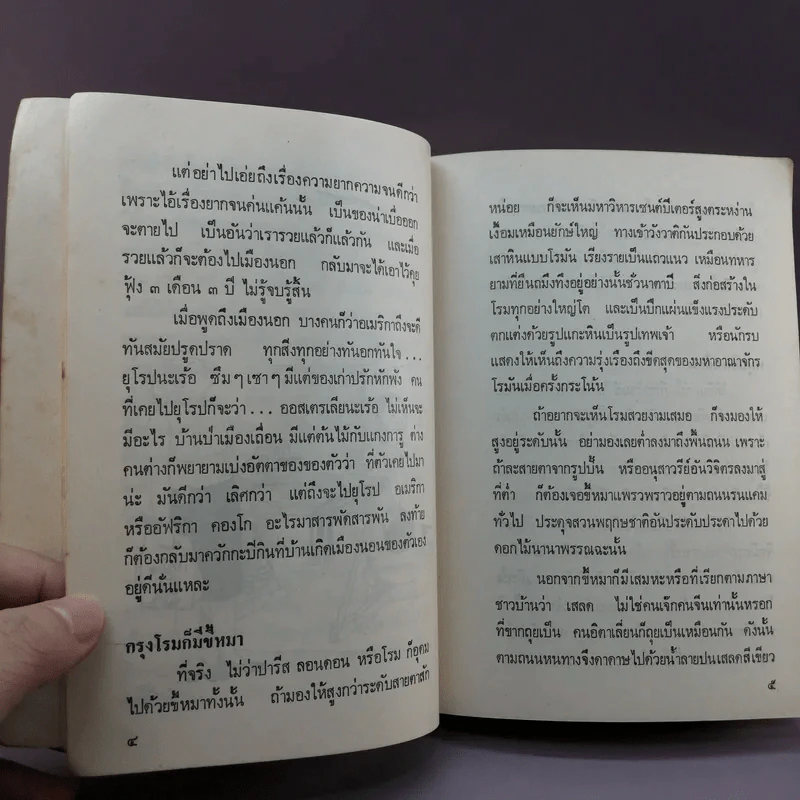 แต่อย่าไปเอ่ยถึงเรื่องความยากความจนดีกว่า
เพราะไอ้เรื่องยากจนค่นแค้นนั้น เป็นของน่าเบื่อออก
จะตายไป เป็นอันว่าเรารวยแล้วก็แล้วกัน และเมื่อ
รวยแล้วก็จะต้องไปเมืองนอก กลับมาจะได้เอาไว้คุย
ฟุ้ง ๓ เดือน ๓ ปี ไม่รู้จบรู้สิ้น
เมื่อพูดถึงเมืองนอก บางคนก็ว่าอเมริกาถึงจะดี
ทันสมัยปรูดปราด ทุกสิ่งทุกอย่างทันอกทันใจ ...
ยุโรปนะเร้อ ซึม ๆ เซา ๆ มีแต่ของเก่าปรักหักพัง คน
ที่เคยไปยุโรปก็จะว่า ... ออสเตรเลียนะเร้อ ไม่เห็นจะ
มีอะไร บ้านป่าเมืองเถื่อน มีแต่ต้นไม้กับแกงการู ต่าง
คนต่างก็พยายามเบ่งอัตตาของของตัวว่า ที่ตัวเคยไปมา
น่ะ มันดีกว่า เลิศกว่า แต่ถึงจะไปยุโรป อเมริกา
หรืออัฟริกา คองโก อะไรมาสารพัดสารพัน ลงท้าย
ก็ต้องกลับมาควักกะปิกินที่บ้านเกิดเมืองนอนของตัวเอง
อยู่ดีนั่นแหละ
กรุงโรมก็มีขี้หมา
ที่จริง ไม่ว่าปารีส ลอนดอน หรือโรม ก็อุดม
ไปด้วยขี้หมาทั้งนั้น ถ้ามองให้สูงกว่าระดับสายตาสัก
๔
หน่อย ก็จะเห็นมหาวิหารเซนต์ปีเตอร์สูงตระหง่าน
เงื้อมเหมือนยักษ์ใหญ่ ทางเข้าวังวาติกันประกอบด้วย
เสาหินแบบโรมัน เรียงรายเป็นแถวแนว เหมือนทหาร
ยามที่ยืนถมึงทึงอยู่อย่างนั้นชั่วนาตาปี สิ่งก่อสร้างใน
โรมทุกอย่างใหญ่โต และเป็นปึกแผ่นแข็งแรงประดับ
ตกแต่งด้วยรูปแกะหินเป็นรูปเทพเจ้า หรือนักรบ
แสดงให้เห็นถึงความรุ่งเรืองถึงขีดสุดของมหาอาณาจักร
โรมันเมื่อครั้งกระโน้น
ถ้าอยากจะเห็นโรมสวยงามเสมอ ก็จงมองให้
สูงอยู่ระดับนั้น อย่ามองเลยต่ำลงมาถึงพื้นถนน เพราะ
ถ้าละสายตาจากรูปปั้น หรืออนุสาวรีย์อันวิจิตรลงมาสู่
ที่ต่ำ ก็ต้องเจอขี้หมาแพรวพราวอยู่ตามถนนรนแคม
ทั่วไป ประดุจสวนพฤกษชาติอันประดับประดาไปด้วย
ดอกไม้นานาพรรณฉะนั้น
นอกจากขี้หมาก็มีเสมหะหรือที่เรียกตามภาษา
ชาวบ้านว่า เสลด ไม่ใช่คนเจ๊กคนจีนเท่านั้นหรอก
ที่ขากถุยเป็น คนอิตาเลี่ยนก็ถุยเป็นเหมือนกัน ดังนั้น
ตามถนนหนทางจึงดาดาษไปด้วยน้ำลายปนเสลดสีเขียว
๕